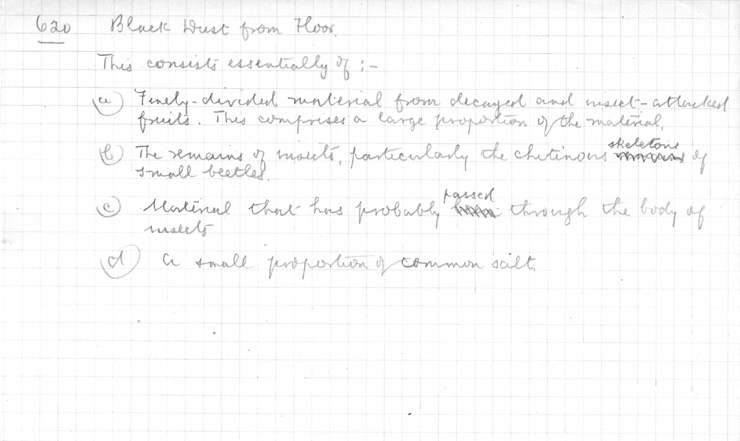 620 Black Dust from Floor.
This consists essentially of :-
(a) Finely-divided material from decayed and insect-attacked
fruits. This comprises a large proportion of the material.
(b) The remains of insects, particularly the chitinous skeletons of
small beetles.
(c) Material that has probably passed through the body of
insects
(d) a small proportion of common salt.